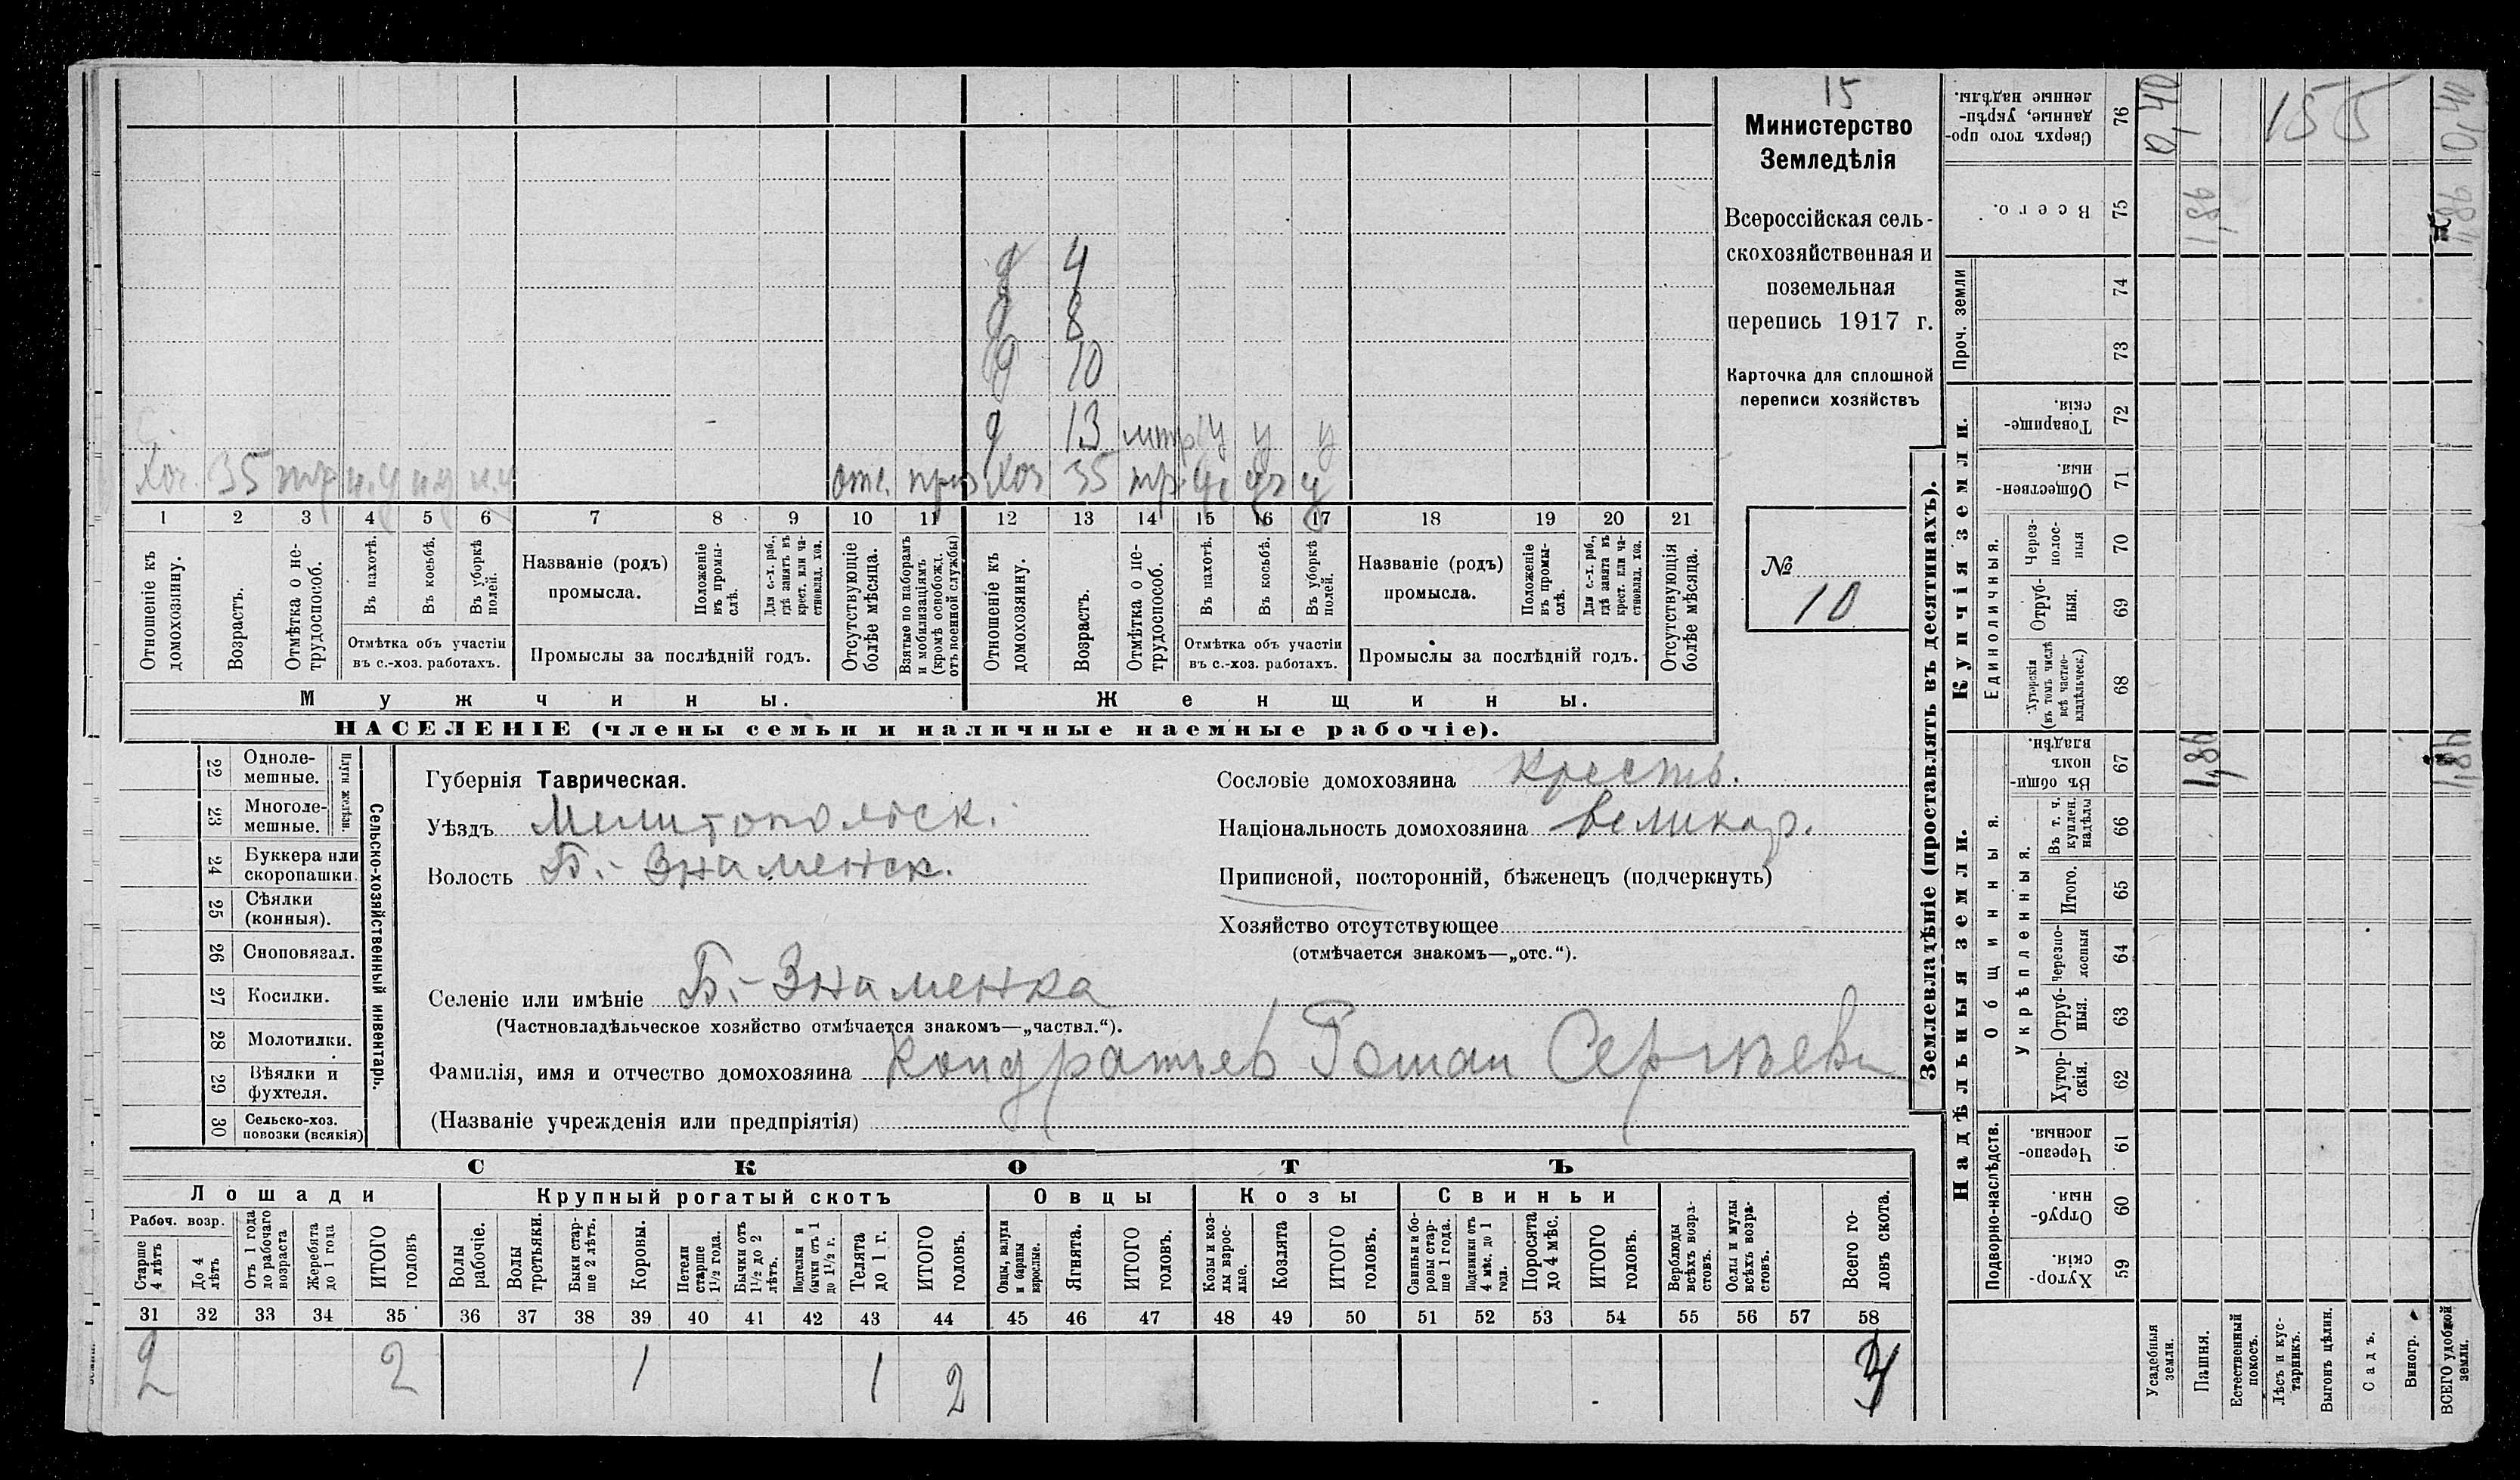 15
Министерство
Земледѣлія
Всероссійская сель-
скохозяйственная и
поземельная
перепись 1917 г.
Карточка для сплошной
переписи хозяйствъ
№
10
д 4
д 8
д 10
д 13 у у у
Хоз. 35 н.у н.у н.у отс. Хоз 35 у
1 2 3 4 5 6 7 8 9 10 11 12 13 14 15 16 17 18 19 20 21
Отношеніе къ домохозяину.
Возрастъ.
Отмѣтка о не-трудоспособ.
Въ пахотѣ.
Въ косьбѣ.
Въ уборкѣ полей.
Отмѣтка объ участіи
въ с.-хоз. работахъ.
Названіе (родъ)
промысла.
Положеніе въ промы-слѣ.
Для с.-х. раб., гдѣ занятъ въ крест. или ча-стновлад. хоз.
Промыслы за послѣдній годъ.
Отсутствующіе болѣе мѣсяца.
Взятые по наборамъ и мобилизаціямъ (кромѣ освобожд. отъ военной службы)
Отношеніе къ домохозяину.
Возрастъ.
Отмѣтка о не-трудоспособ.
Въ пахотѣ.
Въ косьбѣ.
Въ уборкѣ полей.
Отмѣтка объ участіи
въ с.-хоз. работахъ.
Названіе (родъ)
промысла.
Положеніе въ промы-слѣ.
Для с.-х. раб., гдѣ занята въ крест. или ча-стновлад. хоз.
Промыслы за послѣдній годъ.
Отсутствующія болѣе мѣсяца.
Мужчины. Женщины.
НАСЕЛЕНІЕ (члены семьи и наличные наемные рабочіе).
22 Одноле-мешные.
23 Многоле-мешные.
Плуги желѣзн.
24 Буккера или скоропашки.
25 Сѣялки (конныя).
26 Сноповязал.
27 Косилки.
28 Молотилки.
29 Вѣялки и фухтеля.
30 Сельско-хоз. повозки (всякія)
Сельско-хозяйственный инвентарь.
Губернія Таврическая.
Уѣздъ Мелитопольск.
Волость Б.-Знаменск.
Селеніе или имѣніе Б.-Знаменка
(Частновладѣльческое хозяйство отмѣчается знакомъ—„частвл.“).
Фамилія, имя и отчество домохозяина Кондратьевъ Роман Сергѣеви
(Названіе учрежденія или предпріятія)
Сословіе домохозяина крестъ.
Національность домохозяина великор.
Приписной, посторонній, бѣженецъ (подчеркнуть)
Хозяйство отсутствующее
(отмѣчается знакомъ—„отс.“).
СКОТЪ
Лошади Крупный рогатый скотъ Овцы Козы Свиньи
Рабоч. возр.
Старше 4 лѣтъ
До 4 лѣтъ
Отъ 1 года до рабочаго возраста
Жеребята до 1 года
ИТОГО головъ
Волы рабочіе.
Волы третьяки.
Быки стар-ше 2 лѣтъ.
Коровы.
Нетели старше 1½ года.
Бычки отъ 1½ до 2 лѣтъ.
Подтелки и бычки отъ 1 до 1½ г.
Телята до 1 г.
ИТОГО головъ.
Овцы, валухи и бараны взрослые.
Ягнята.
ИТОГО головъ.
Козы и коз-лы взрос-лые.
Козлята
ИТОГО головъ.
Свиньи и бо-ровы стар-ше 1 года.
Подсвинки отъ 4 мѣс. до 1 года.
Поросята до 4 мѣс.
ИТОГО головъ.
Верблюды всѣхъ возра-стовъ.
Ослы и мулы всѣхъ возра-стовъ.
Всего го-ловъ скота.
31 32 33 34 35 36 37 38 39 40 41 42 43 44 45 46 47 48 49 50 51 52 53 54 55 56 57 58
2 2 1 1 2
Землевладѣніе (проставлять въ десятинахъ).
Сверхъ того про-данные, укрѣп-ленные надѣлы. 76 0,40 155 0,40
Всего. 75 1,86
Проч. земли 74
73
Купчія земли.
Товарище-скія. 72
Обществен-ныя. 71
Единоличныя.
Через-полос-ныя 70
Отруб-ныя. 69
Хуторскія (въ томъ числѣ всѣ частно-владѣльческ.) 68
Надѣльныя земли.
Общинныя.
Въ общи-номъ владѣн. 67
Укрѣпленныя.
Въ т. ч. куплен. надѣлы 66
Итого. 65
Черезпо-лосныя 64
Отруб-ныя. 63
Хутор-скія. 62
Подворно-наслѣдств.
Черезпо-лосныя. 61
Отруб-ныя. 60
Хутор-скія. 59
Усадебныя земли.
Пашня.
Естественный покосъ.
Лѣсъ и кус-тарникъ.
Выгонъ цѣлин.
Садъ.
Виногр.
ВСЕГО удобной земли.